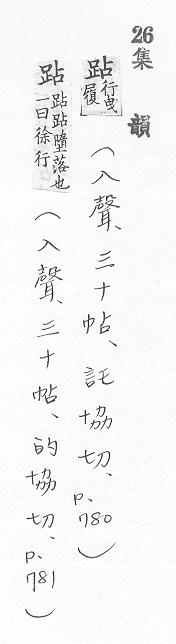 26集韻
跕行曳履（入聲、三十帖、託協切、p.780）
跕跕跕墮落也一曰徐行（入聲、三十帖、的協切、p.781）